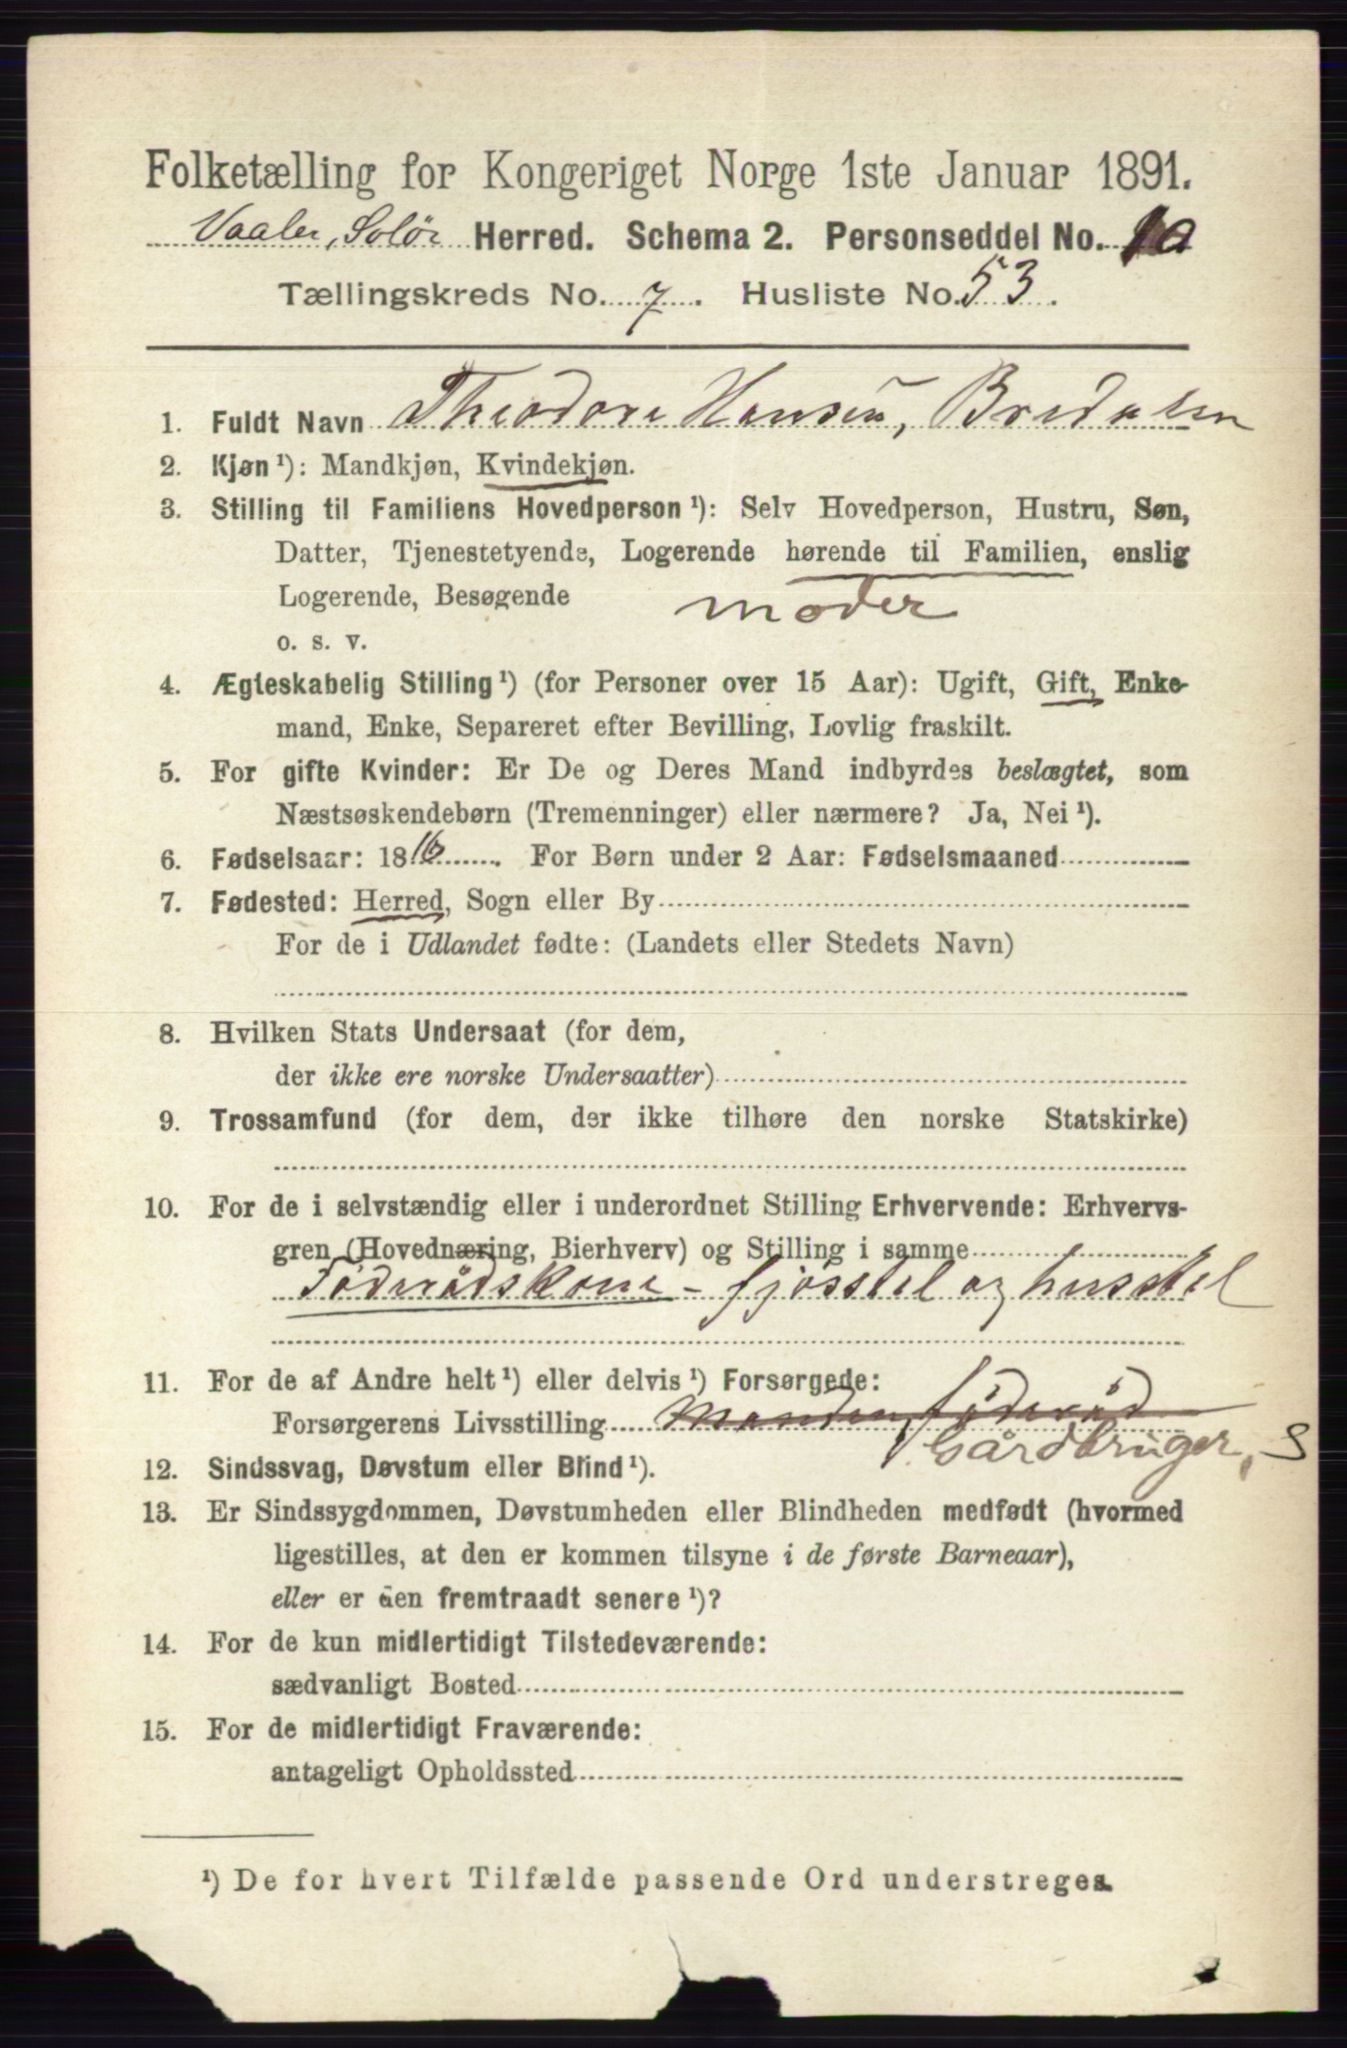 Folketælling for Kongeriget Norge 1ste Januar 1891.
Vaaler, Solør Herred. Schema 2. Personseddel No. 10
Tællingskreds No. 7. Husliste No. 53.
1. Fuldt Navn Theodora Hansen, Bredalen
2. Kjøn ¹): Mandkjøn, Kvindekjøn.
3. Stilling til Familiens Hovedperson ¹): Selv Hovedperson, Hustru, Søn,
Datter, Tjenestetyende, Logerende hørende til Familien, enslig
Logerende, Besøgende moder
o. s. v.
4. Ægteskabelig Stilling ¹) (for Personer over 15 Aar): Ugift, Gift, Enke-
mand, Enke, Separeret efter Bevilling, Lovlig fraskilt.
5. For gifte Kvinder: Er De og Deres Mand indbyrdes beslægtet, som
Næstsøskendebørn (Tremenninger) eller nærmere? Ja, Nei ¹).
6. Fødselsaar: 1816. For Børn under 2 Aar: Fødselsmaaned
7. Fødested: Herred, Sogn eller By
For de i Udlandet fødte: (Landets eller Stedets Navn)
8. Hvilken Stats Undersaat (for dem,
der ikke ere norske Undersaatter)
9. Trossamfund (for dem, der ikke tilhøre den norske Statskirke)
10. For de i selvstændig eller i underordnet Stilling Erhvervende: Erhvervs-
gren (Hovednæring, Bierhverv) og Stilling i samme
Föderådskone - fjösstel og husstel
11. For de af Andre helt ¹) eller delvis ¹) Forsørgede:
Forsørgerens Livsstilling Manden, föderåd
Gårdbruger, S
12. Sindssvag, Døvstum eller Blind ¹).
13. Er Sindssygdommen, Døvstumheden eller Blindheden medfødt (hvormed
ligestilles, at den er kommen tilsyne i de første Barneaar),
eller er den fremtraadt senere ¹)?
14. For de kun midlertidigt Tilstedeværende:
sædvanligt Bosted
15. For de midlertidigt Fraværende:
antageligt Opholdssted
¹) De for hvert Tilfælde passende Ord understreges.